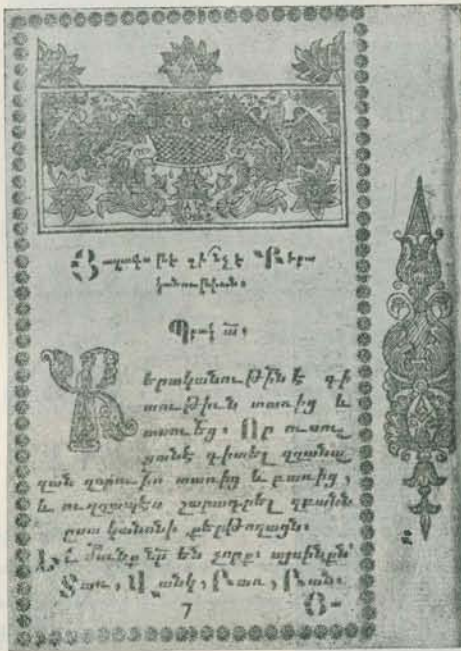 Յաղագս թէ զի՞նչ է Քերա
կանութիւն։
Պրակ ա։
Քերականութի՜ն է գի
տութիւն տառից և
Որ ուսու
ցանէ գիտել զզանա
զան տառից և բառից,
և ուղղապէս շարադրել զբանն
ըստ կանոնի քերթողացն։
են չորք. այսինքն՝
Տառ, Վանկ, Բառ, Բան։
7